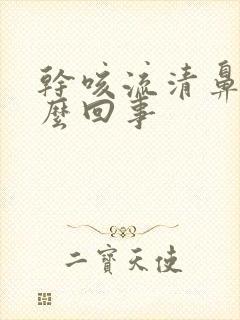 幹咳流清鼻
麼回事
二寶天使